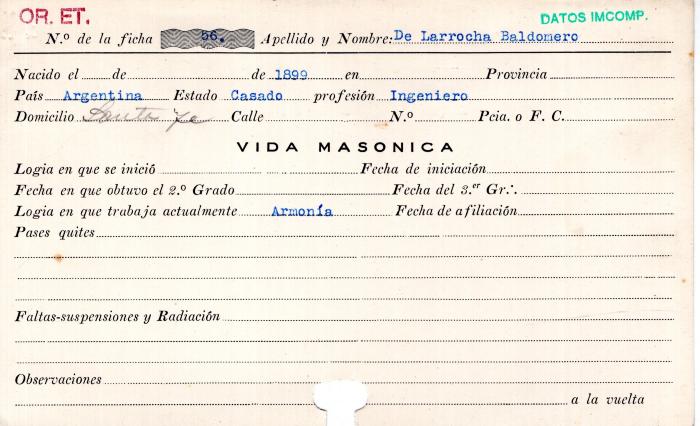 OR. ET.
DATOS IMCOMP.
N.º de la ficha 56. Apellido y Nombre: De Larrocha Baldomero
Nacido el de de 1899 en Provincia
País Argentina Estado Casado profesión Ingeniero
Domicilio Santa Fe Calle N.º Pcia. o F. C.
VIDA MASONICA
Logia en que se inició Fecha de iniciación
Fecha en que obtuvo el 2.º Grado Fecha del 3.er Gr∴
Logia en que trabaja actualmente Armonía Fecha de afiliación
Pases quites
Faltas-suspensiones y Radiación
Observaciones
a la vuelta